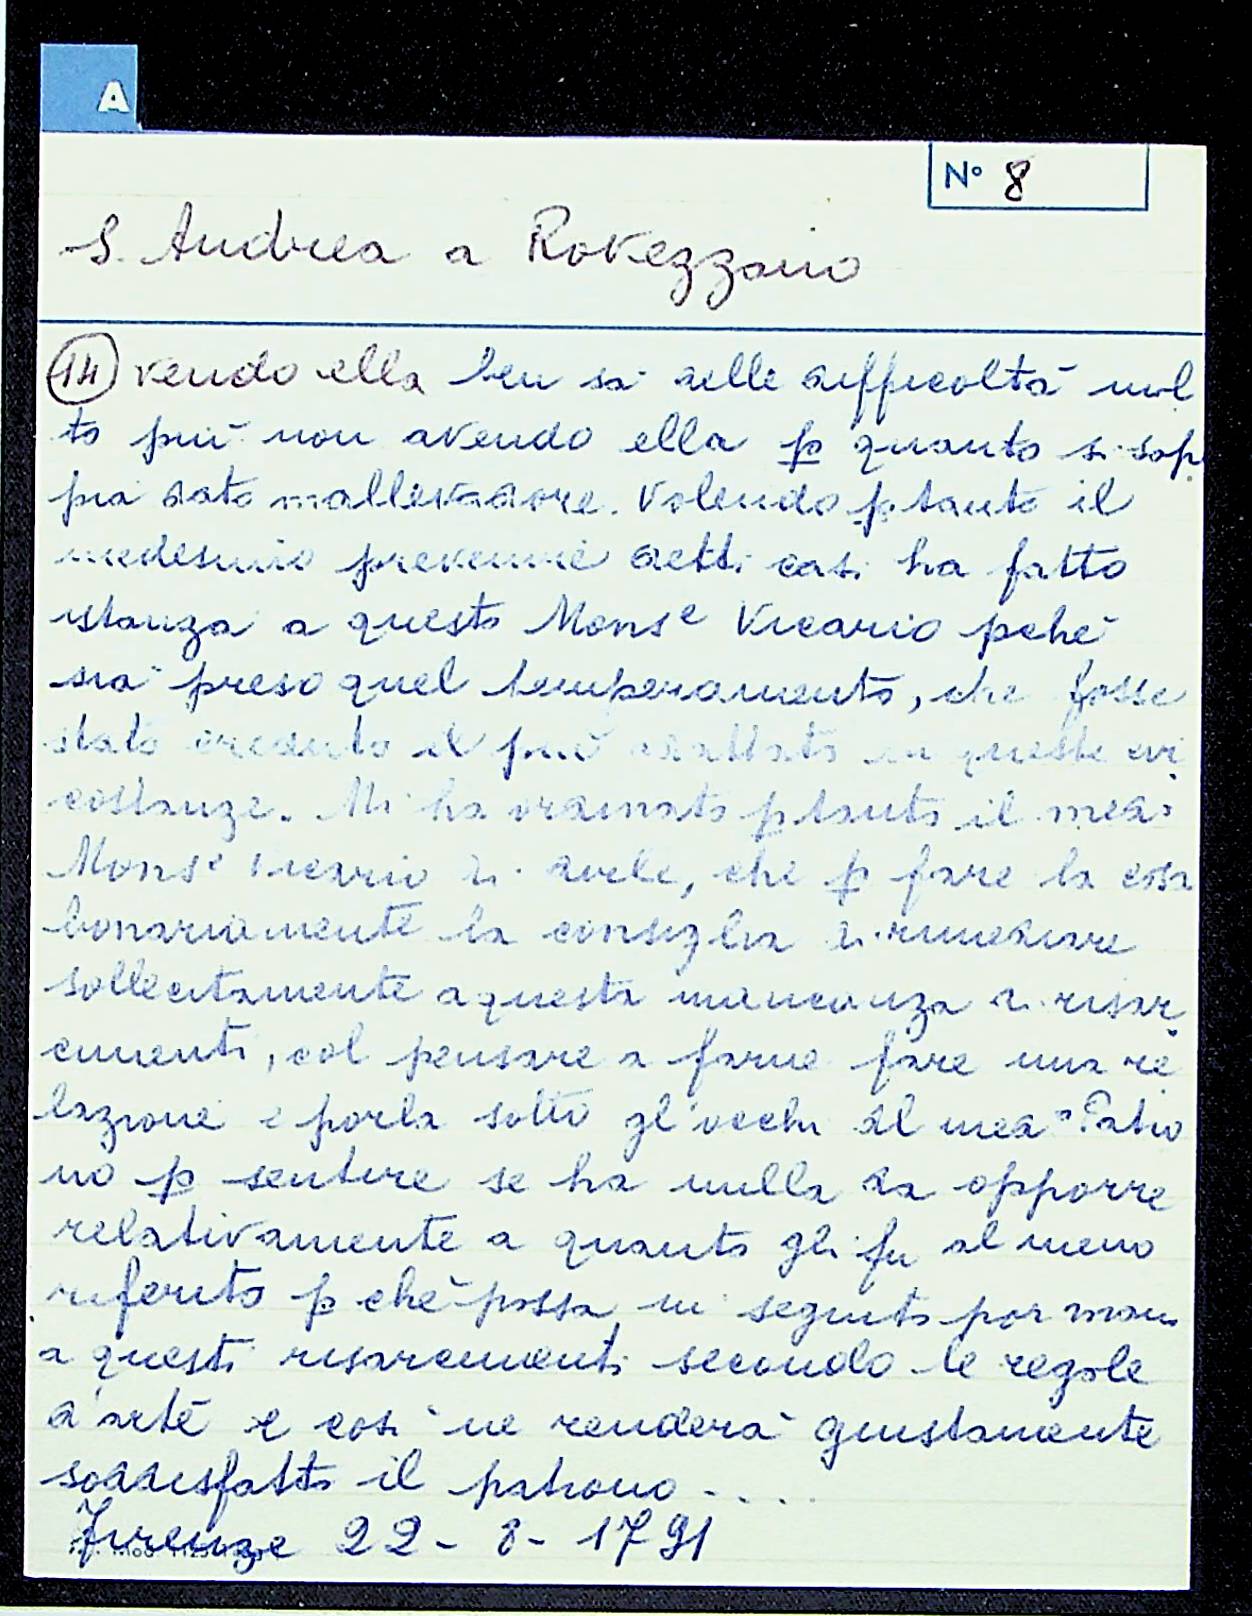 A
N° 8
S. Andrea a Rovezzano
(14) vendo ella ben sa delle difficoltà mol
to più non avendo ella p quanto si sap
pia dato mallevadore. Volendo ptanto il
medesimo prevenire detti casi ha fatto
istanza a questo Monse Vicario pché
sia preso quel temperamento, che fosse
stato creduto il più adattato in queste cir
costanze. Mi ha ordinato ptanto il meds
Monse Vicario di dirle, che p fare la cosa
bonariamente la consiglia di rimediare
sollecitamente a questa mancanza di risar
cimenti, col pensare a farne fare una re
lazione e porla sotto gl'occhi del medo Patro
no p sentire se ha nulla da opporre
relativamente a quanto gli fu al meno
riferito p ché possa in seguito por mano
a questi risarcimenti secondo le regole
d'arte e così ne renderà giustamente
soddisfatto il patrono ....
Firenze 22 - 8 - 1791